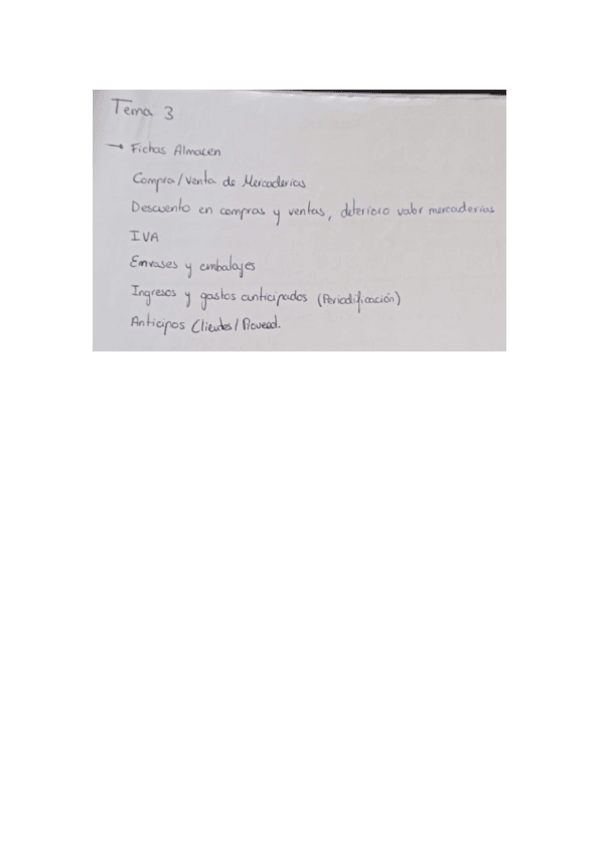 Tema 3
→ Fichas Almacen
Compra/venta de Mercaderias
Descuento en compras y ventas, deterioro valor mercaderias
IVA
Envases y embalajes
Ingresos y gastos anticipados (Periodificación)
Anticipos Clientes/Proveed.